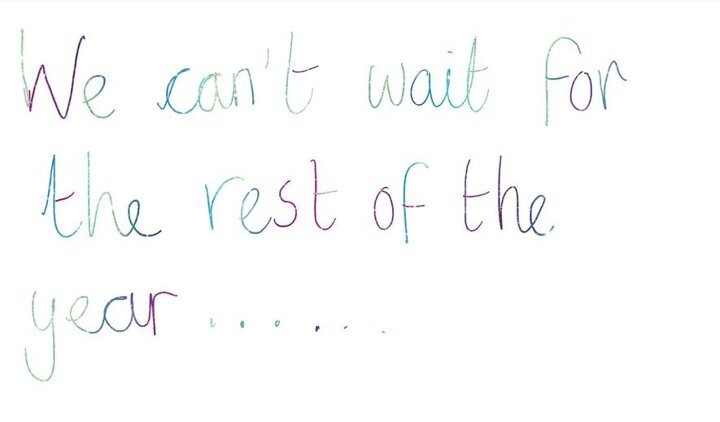 We can't wait for
the rest of the
year.......